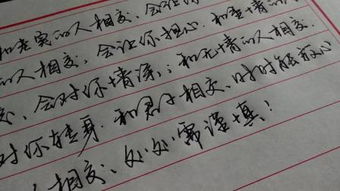 和老实的人相交、会让你
的人相交、会让你担心 和重情的
会对你情深；和无情的人相交、
对你转身 和君子相交、时时能放心
人相交、处处需谨慎！